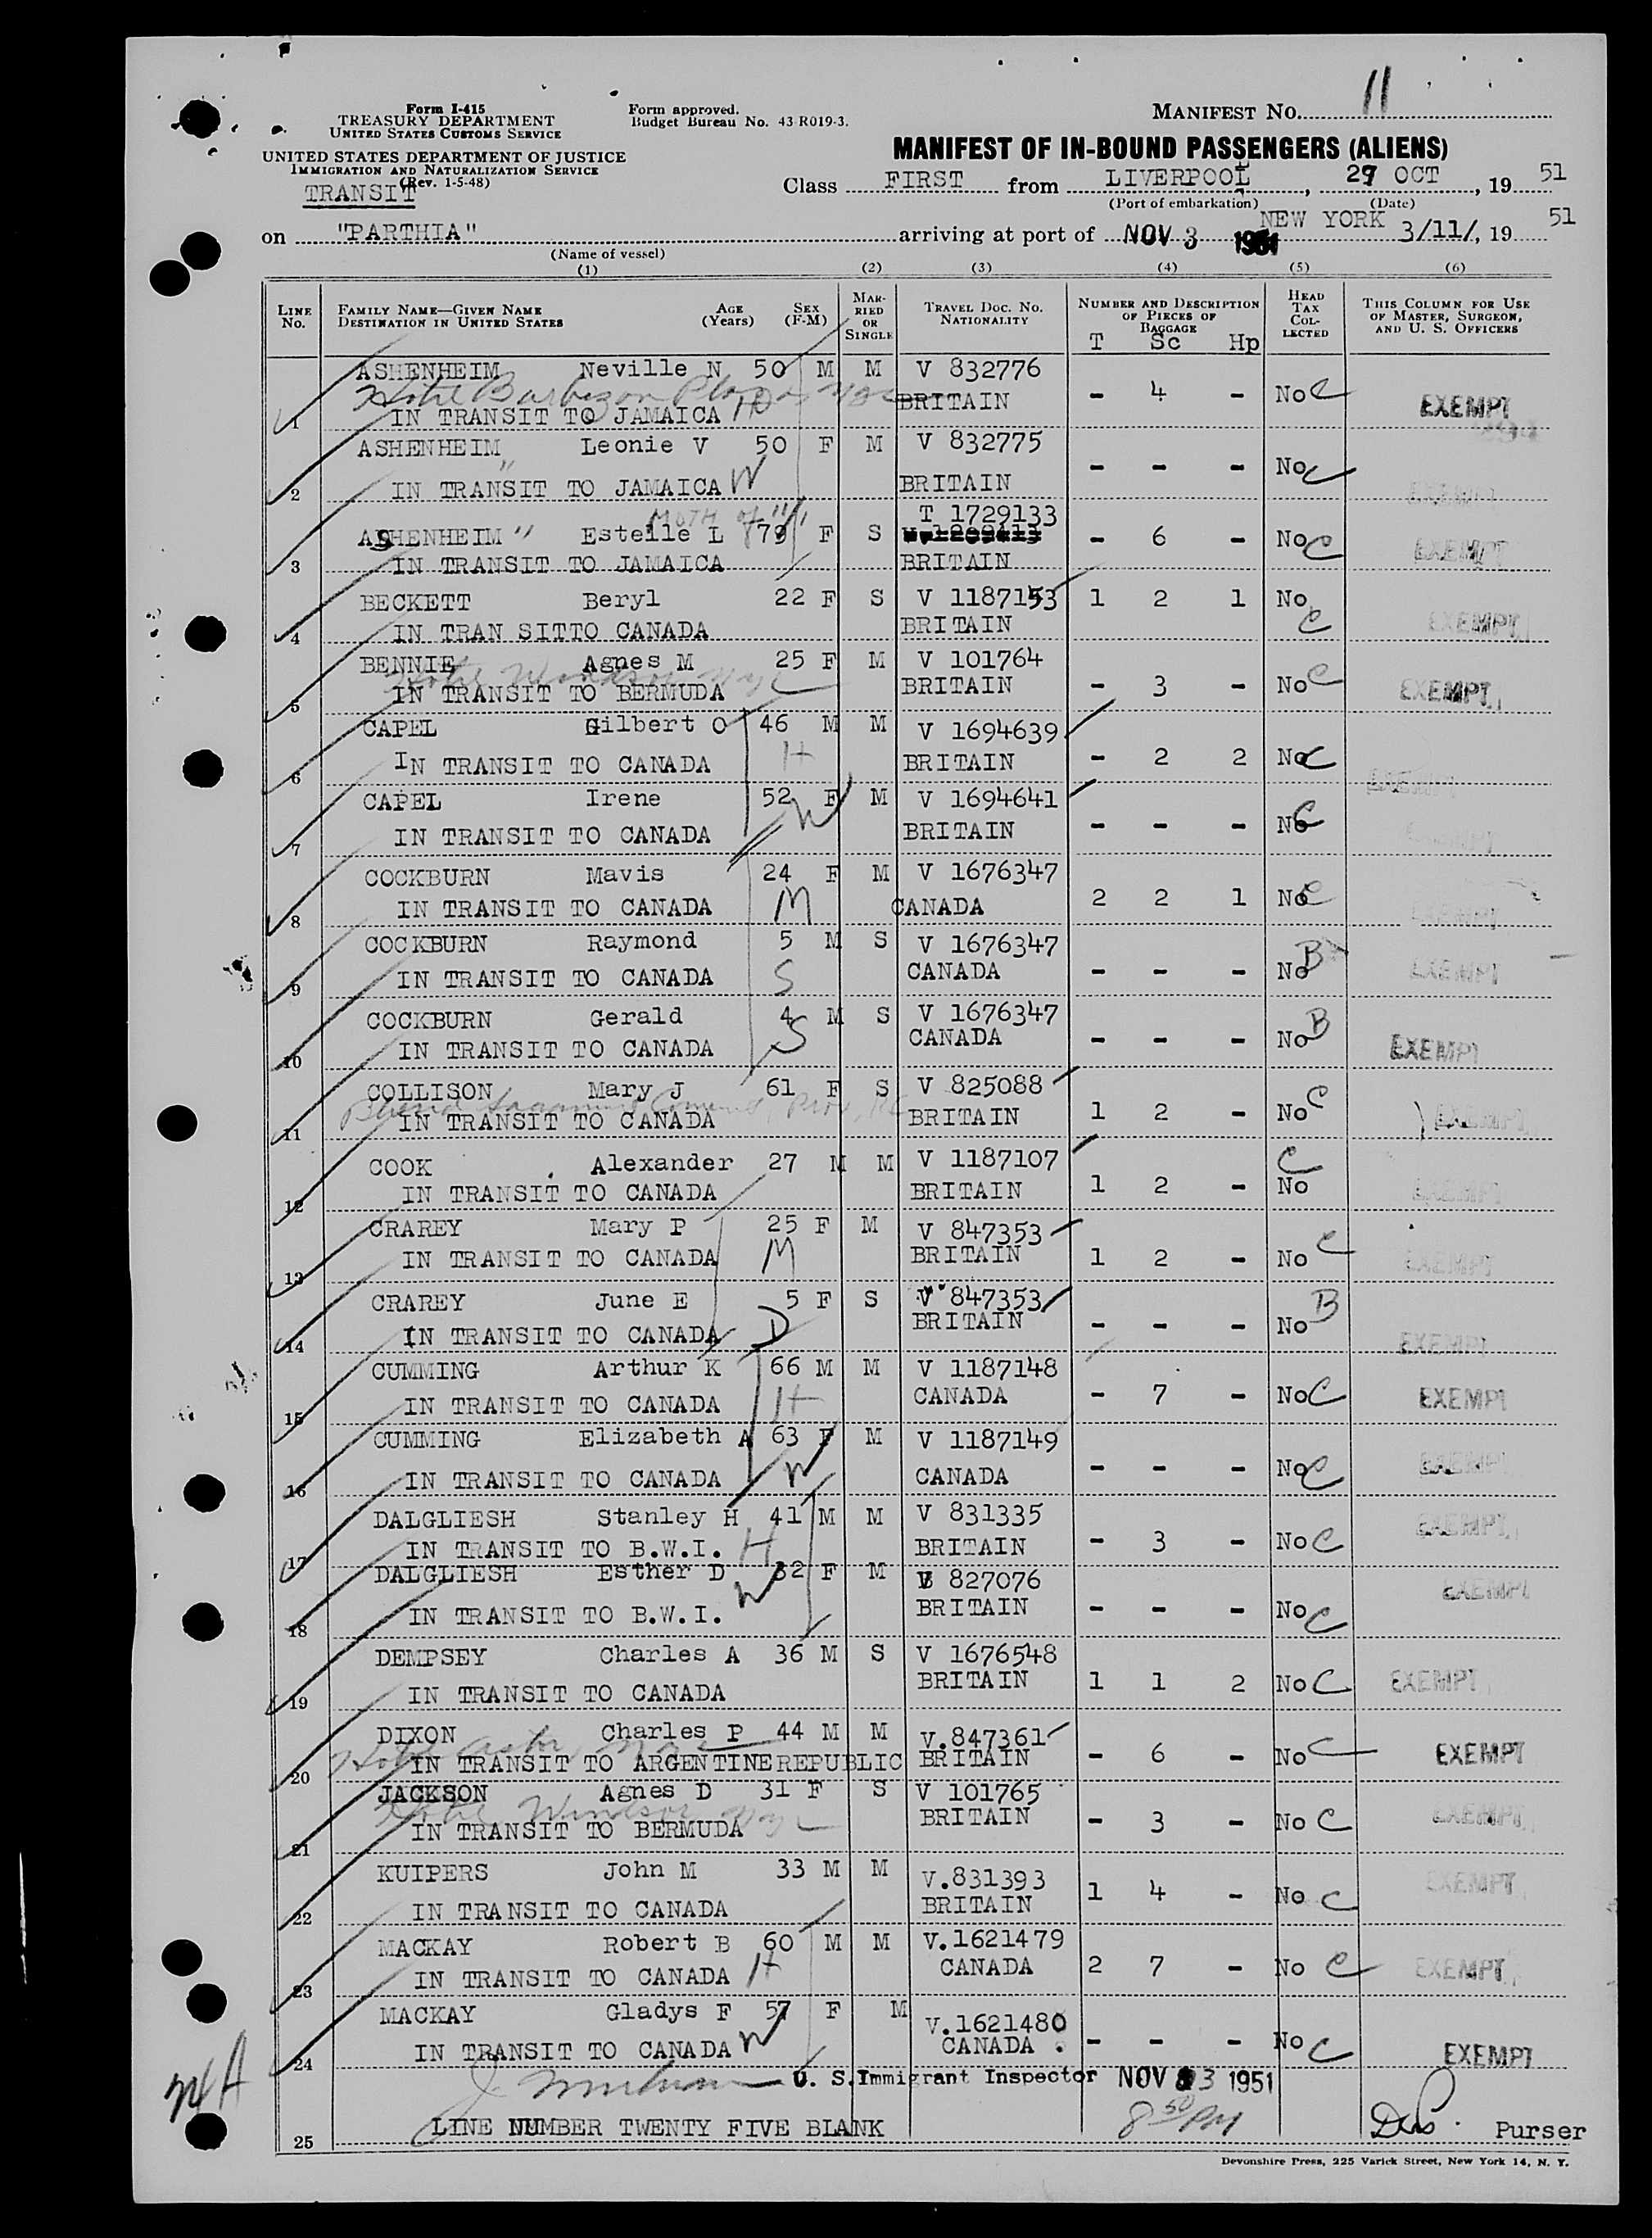 Form I-415
TREASURY DEPARTMENT
UNITED STATES CUSTOMS SERVICE
UNITED STATES DEPARTMENT OF JUSTICE
IMMIGRATION AND NATURALIZATION SERVICE
(Rev. 1-5-48)
TRANSIT
Form approved.
Budget Bureau No. 43-R019-3.
MANIFEST NO. 11
MANIFEST OF IN-BOUND PASSENGERS (ALIENS)
Class FIRST from LIVERPOOL, 29 OCT, 19 51
(Port of embarkation) (Date)
on "PARTHIA" arriving at port of NEW YORK NOV 3 1951 3/11/, 19 51
(Name of vessel)
(1) (2) (3) (4) (5) (6)
LINE NO. FAMILY NAME—GIVEN NAME DESTINATION IN UNITED STATES AGE (Years) SEX (F-M) MARRIED OR SINGLE TRAVEL DOC. NO. NATIONALITY NUMBER AND DESCRIPTION OF PIECES OF BAGGAGE HEAD TAX COLLECTED THIS COLUMN FOR USE OF MASTER, SURGEON, AND U. S. OFFICERS
T Sc Hp
ASHENHEIM Neville N 50 M M V 832776
Hotel Barbizon Plaza NYC BRITAIN - 4 - No C EXEMPT
1 IN TRANSIT TO JAMAICA H
ASHENHEIM Leonie V 50 F M V 832775
" - - - No C
2 IN TRANSIT TO JAMAICA W BRITAIN EXEMPT
Moth of 1/1 T 1729133
ASHENHEIM " Estelle L 79 F S - 6 - No C EXEMPT
3 IN TRANSIT TO JAMAICA BRITAIN
BECKETT Beryl 22 F S V 1187153 1 2 1 No C
4 IN TRAN SITTO CANADA BRITAIN EXEMPT
BENNIE Agnes M 25 F M V 101764
Hotel Windsor NYC
5 IN TRANSIT TO BERMUDA BRITAIN - 3 - No C EXEMPT
CAPEL Gilbert O 46 M M V 1694639
6 IN TRANSIT TO CANADA H BRITAIN - 2 2 No C EXEMPT
CAPEL Irene 52 F M V 1694641
7 IN TRANSIT TO CANADA W BRITAIN - - - No C EXEMPT
COCKBURN Mavis 24 F M V 1676347
8 IN TRANSIT TO CANADA M CANADA 2 2 1 No C EXEMPT
COCKBURN Raymond 5 M S V 1676347
9 IN TRANSIT TO CANADA S CANADA - - - No B EXEMPT
COCKBURN Gerald 4 M S V 1676347
10 IN TRANSIT TO CANADA S CANADA - - - No B EXEMPT
COLLISON Mary J 61 F S V 825088
11 IN TRANSIT TO CANADA BRITAIN 1 2 - No C EXEMPT
COOK Alexander 27 M M V 1187107
12 IN TRANSIT TO CANADA BRITAIN 1 2 - No C EXEMPT
CRAREY Mary P 25 F M V 847353
13 IN TRANSIT TO CANADA M BRITAIN 1 2 - No C EXEMPT
CRAREY June E 5 F S V 847353
14 IN TRANSIT TO CANADA D BRITAIN - - - No B EXEMPT
CUMMING Arthur K 66 M M V 1187148
15 IN TRANSIT TO CANADA H CANADA - 7 - No C EXEMPT
CUMMING Elizabeth A 63 F M V 1187149
16 IN TRANSIT TO CANADA W CANADA - - - No C EXEMPT
DALGLIESH Stanley H 41 M M V 831335
17 IN TRANSIT TO B.W.I. H BRITAIN - 3 - No C EXEMPT
DALGLIESH Esther D 32 F M V 827076
18 IN TRANSIT TO B.W.I. W BRITAIN - - - No C EXEMPT
DEMPSEY Charles A 36 M S V 1676548
19 IN TRANSIT TO CANADA BRITAIN 1 1 2 No C EXEMPT
DIXON Charles P 44 M M V.847361
Hotel Astor NYC
20 IN TRANSIT TO ARGENTINEREPUBLIC BRITAIN - 6 - No C EXEMPT
JACKSON Agnes D 31 F S V 101765
Hotel Windsor NYC
21 IN TRANSIT TO BERMUDA BRITAIN - 3 - No C EXEMPT
KUIPERS John M 33 M M V.831393
22 IN TRANSIT TO CANADA BRITAIN 1 4 - No C EXEMPT
MACKAY Robert B 60 M M V.1621479
23 IN TRANSIT TO CANADA H CANADA 2 7 - No C EXEMPT
MACKAY Gladys F 57 F M V.1621480
24 IN TRANSIT TO CANADA W CANADA . - - - No C EXEMPT
U. S. Immigrant Inspector NOV 3 1951
8 50 PM
25 LINE NUMBER TWENTY FIVE BLANK Purser
Devonshire Press, 225 Varick Street, New York 14, N. Y.